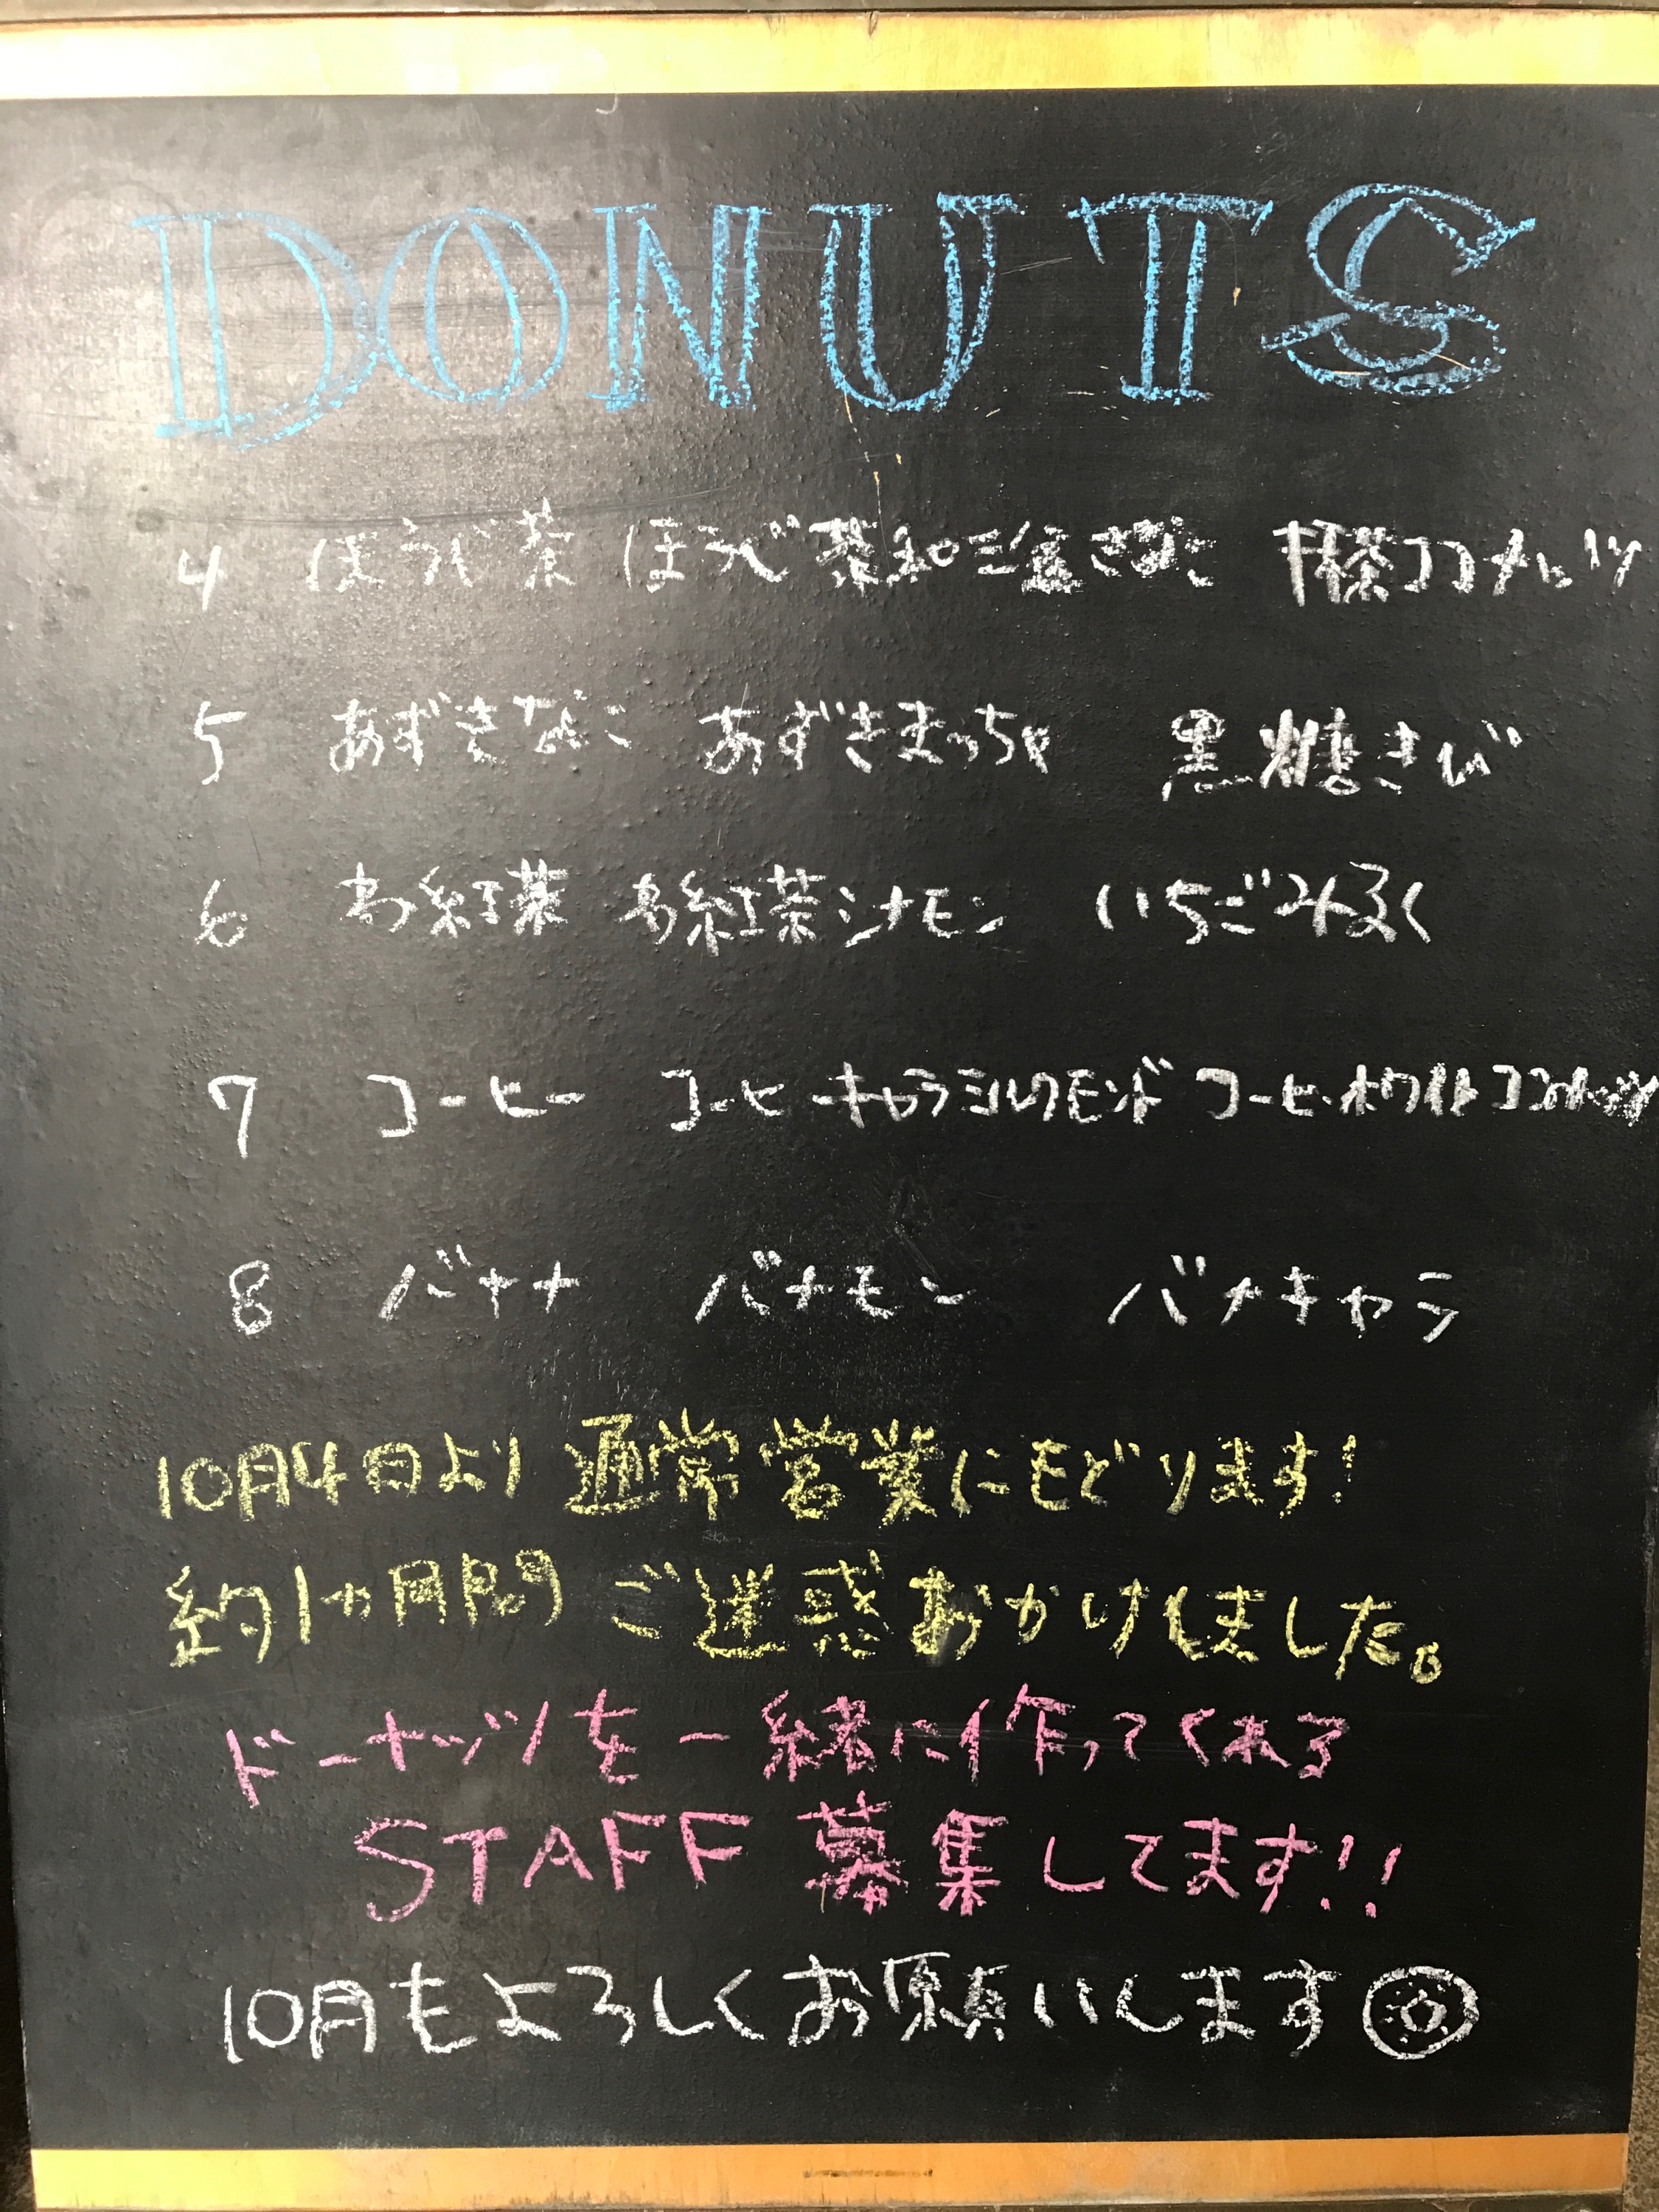 DONUTS
4 ほうじ茶 ほうじ茶和三盆きなこ 抹茶ココナッツ
5 あずきなこ あずきまっちゃ 黒糖きび
6 お紅茶 お紅茶シナモン いちごみるく
7 コーヒー コーヒーキャラミルクモンド コーヒーホワイトココナッツ
8 バナナ バナモン バナキャラ
10月4日より通常営業にもどります!
約1ヵ月間 ご迷惑おかけしました。
ドーナッツを一緒に作ってくれる
STAFF 募集してます!!
10月もよろしくお願いします